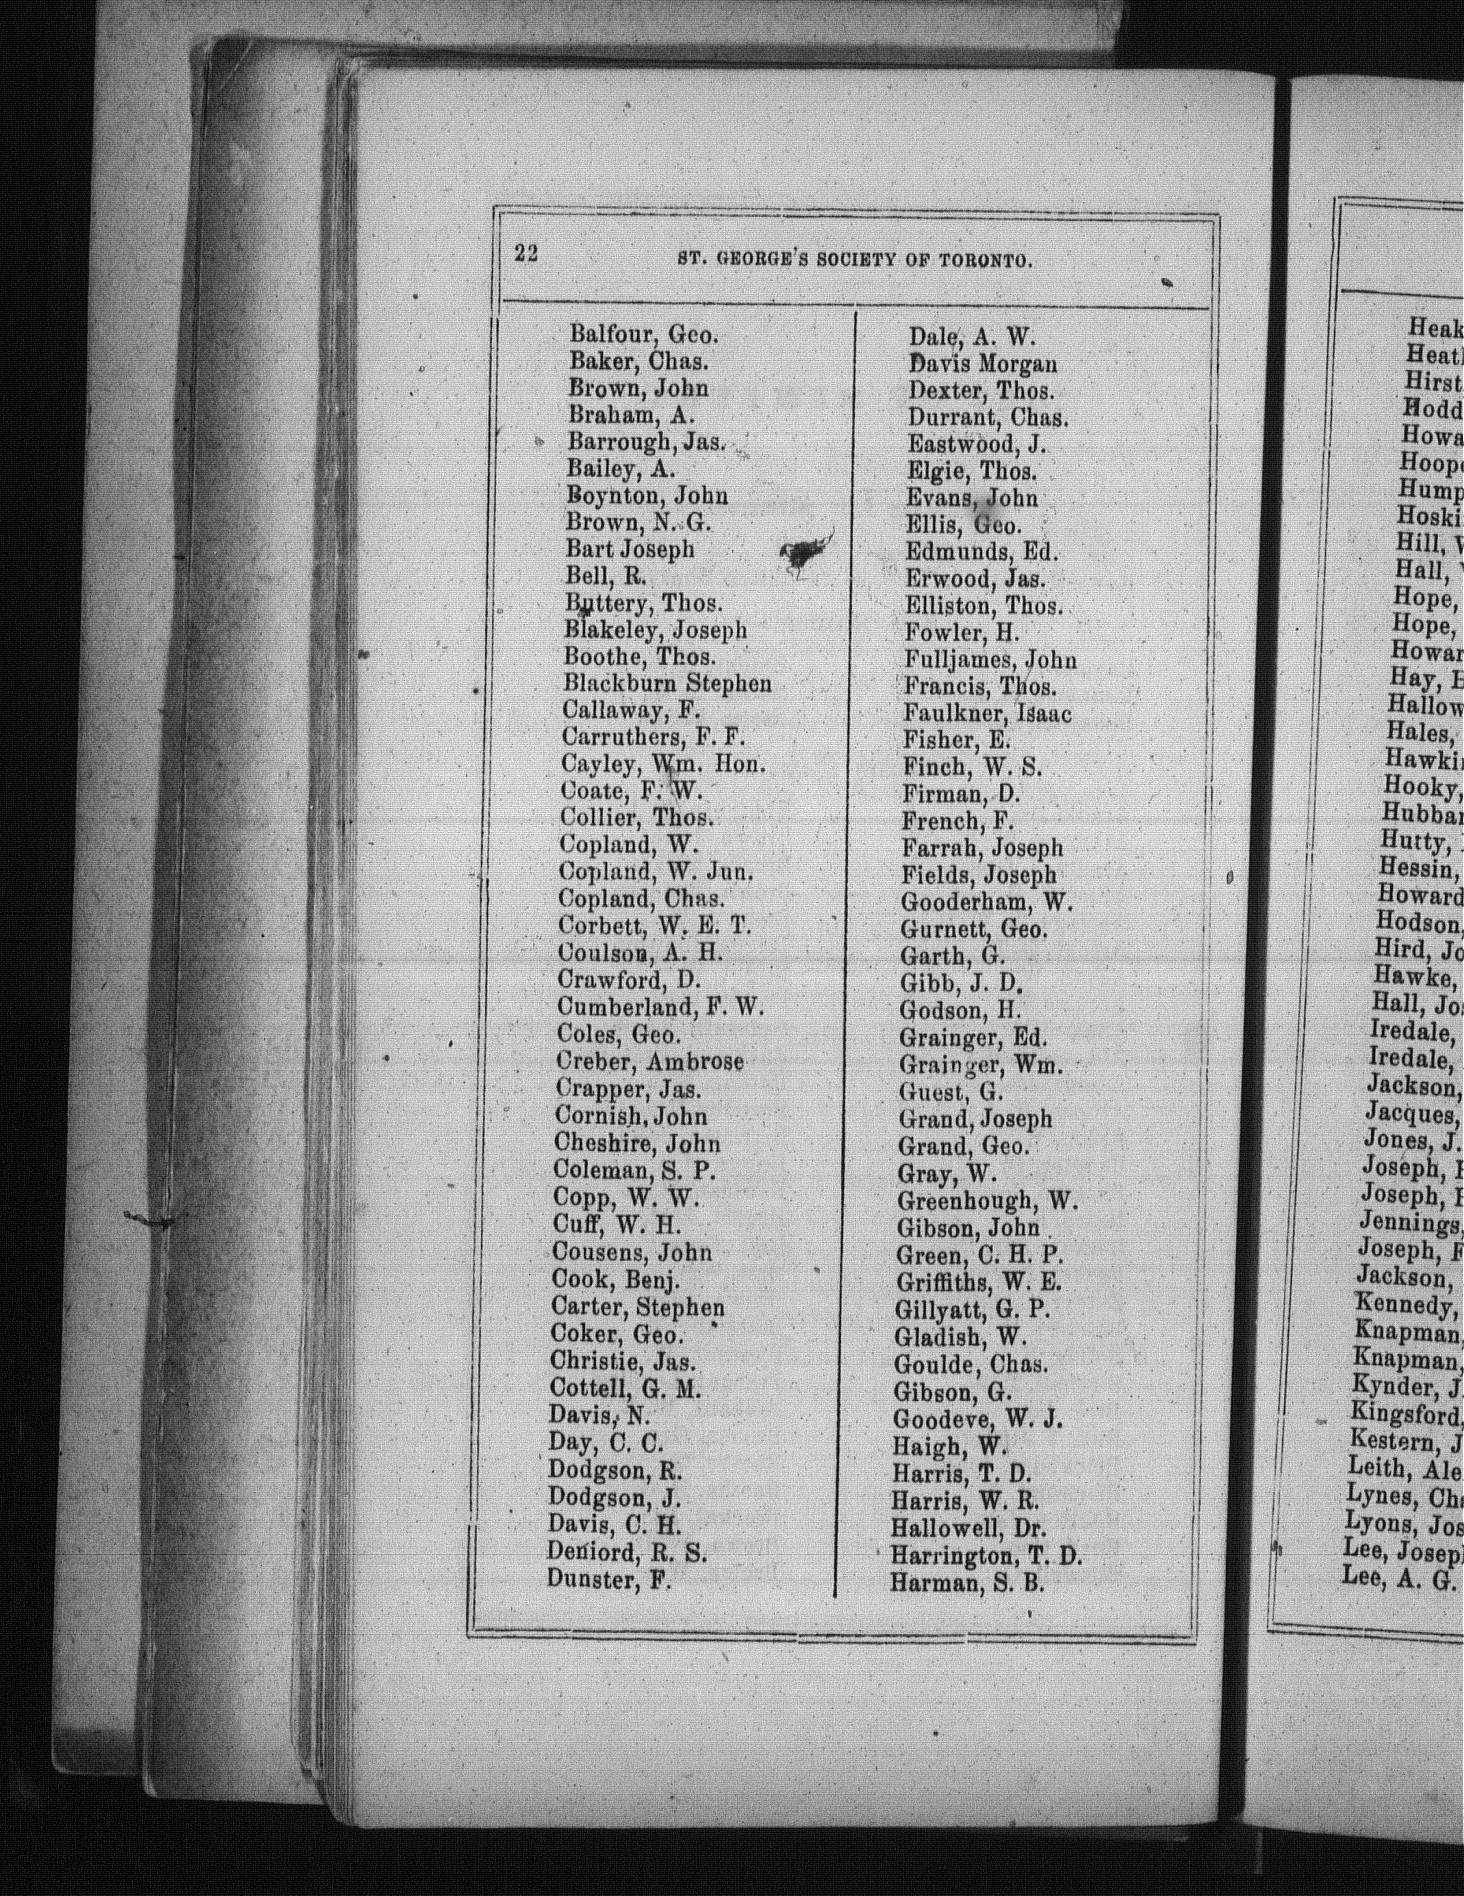 22
ST. GEORGE'S SOCIETY OF TORONTO.
Balfour, Geo.
Baker, Chas.
Brown, John
Braham, A.
Barrough, Jas.
Bailey, A.
Boynton, John
Brown, N. G.
Bart Joseph
Bell, R.
Buttery, Thos.
Blakeley, Joseph
Boothe, Thos.
Blackburn Stephen
Callaway, F.
Carruthers, F. F.
Cayley, Wm. Hon.
Coate, F. W.
Collier, Thos.
Copland, W.
Copland, W. Jun.
Copland, Chas.
Corbett, W. E. T.
Coulson, A. H.
Crawford, D.
Cumberland, F. W.
Coles, Geo.
Creber, Ambrose
Crapper, Jas.
Cornish, John
Cheshire, John
Coleman, S. P.
Copp, W. W.
Cuff, W. H.
Cousens, John
Cook, Benj.
Carter, Stephen
Coker, Geo.
Christie, Jas.
Cottell, G. M.
Davis, N.
Day, C. C.
Dodgson, R.
Dodgson, J.
Davis, C. H.
Deniord, R. S.
Dunster, F.
Dale, A. W.
Davis Morgan
Dexter, Thos.
Durrant, Chas.
Eastwood, J.
Elgie, Thos.
Evans, John
Ellis, Geo.
Edmunds, Ed.
Erwood, Jas.
Elliston, Thos.
Fowler, H.
Fulljames, John
Francis, Thos.
Faulkner, Isaac
Fisher, E.
Finch, W. S.
Firman, D.
French, F.
Farrah, Joseph
Fields, Joseph
Gooderham, W.
Gurnett, Geo.
Garth, G.
Gibb, J. D.
Godson, H.
Grainger, Ed.
Grainger, Wm.
Guest, G.
Grand, Joseph
Grand, Geo.
Gray, W.
Greenhough, W.
Gibson, John
Green, C. H. P.
Griffiths, W. E.
Gillyatt, G. P.
Gladish, W.
Goulde, Chas.
Gibson, G.
Goodeve, W. J.
Haigh, W.
Harris, T. D.
Harris, W. R.
Hallowell, Dr.
Harrington, T. D.
Harman, S. B.
Hirst
Hill,
Hall,
Hope,
Hope,
Hay,
Hales,
Hooky,
Hutty,
Hessin,
Howard
Hodson,
Hird, Jo
Hawke,
Hall, Jos
Iredale,
Iredale,
Jackson,
Jacques,
Jones, J.
Joseph,
Joseph,
Jennings,
Joseph,
Jackson,
Kennedy,
Knapman,
Knapman,
Kynder, J.
Kingsford,
Kestern, J
Leith, Ale
Lynes, Cha
Lyons, Jos
Lee, Joseph
Lee, A. G.